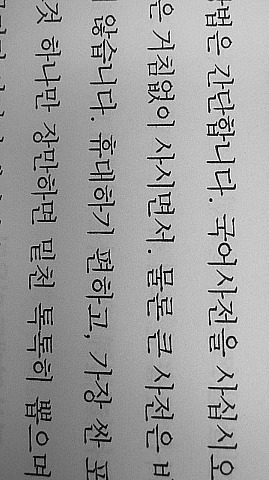 방법은 간단합니다. 국어사전을 사십시오
은 거침없이 사시면서. 물론 큰 사전은
않습니다. 휴대하기 편하고, 가장 싼 포
것 하나만 장만하면 밑천 톡톡히 뽑으며